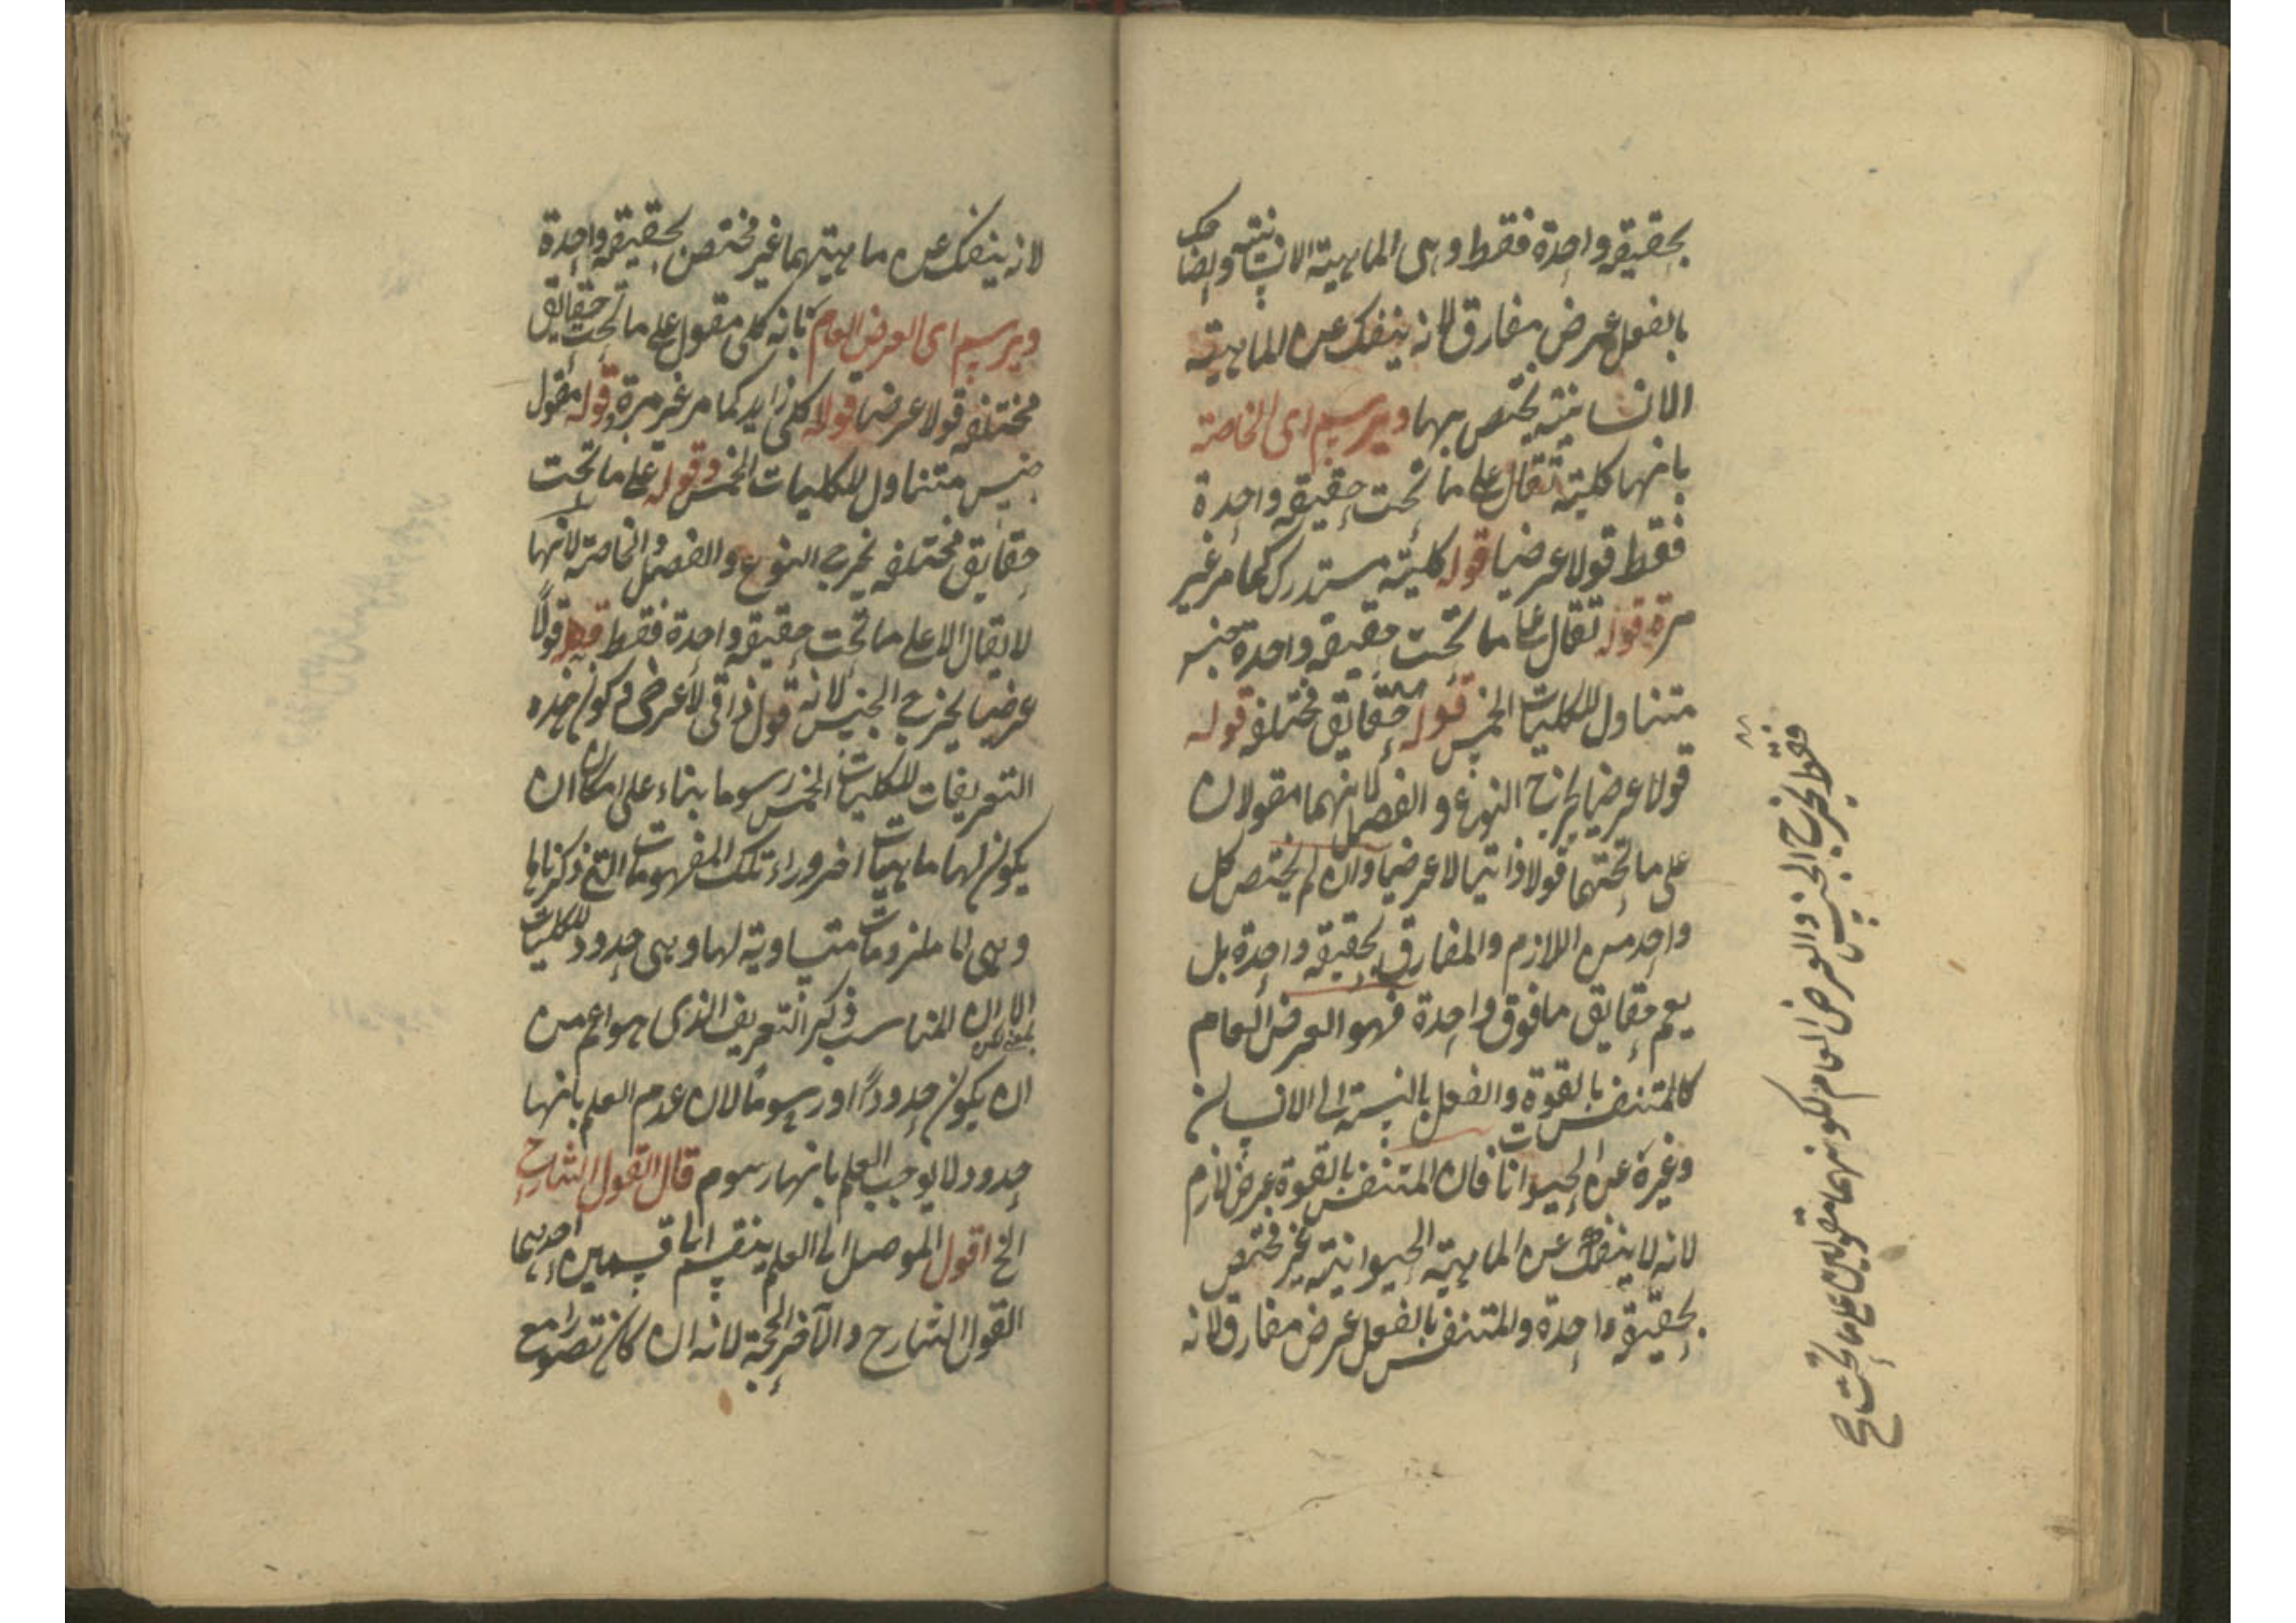 بحقيقة واحدة فقط وهى الماهية الانسانية والضاحك
بالفعل عرض مفارق لانه ينفك عن الماهية
الانسانية يختص بها ويرسم اى الخاصة
بانها كلية تقال على ما تحت حقيقة واحدة
فقط قولا عرضيا قوله كلية مستدرك كما مر غير
مرة قوله تقال على ما تحت حقيقة واحدة جنس
متناول للكليات الخمس قوله حقايق مختلفة قوله
قولا عرضيا يخرج النوع والفصل لانهما مقولان
على ما تحتهما قولا ذاتيا لا عرضيا وان لم يختص كل
واحد من اللازم والمفارق بحقيقة واحدة بل
يعم حقايق ما فوق واحدة فهو العرض العام
كالمتنفس بالقوة والفعل بالنسبة الى الانسان
وغيره من الحيوانات فان المتنفس بالقوة عرض لازم
لانه لا ينفك عن الماهية الحيوانية غير مختص
بحقيقة واحدة والمتنفس بالفعل عرض مفارق لانه
فقط يخرج الجنس والعرض العام لكونهما مقولين على ما تحت صح
لانه ينفك عن ماهيتهما غير مختص بحقيقة واحدة
ويرسم اى العرض العام بانه كلى مقول على ما تحت حقايق
مختلفة قولا عرضيا قوله كلى زايد كما مر غير مرة وقوله مقول
جنس متناول للكليات الخمس وقوله على ما تحت
حقايق مختلفة يخرج النوع والفصل والخاصة لانها
لا يقال الا على ما تحت حقيقة واحدة فقط قوله قولاً
عرضيا يخرج الجنس لانه قول ذاتى لا عرضى وكون هذه
التعريفات للكليات الخمس رسوما بناء على امكان ان
يكون لها ماهيات اخر وراء تلك المفهومات التى ذكرناها
وهى لها ملزومات متساوية لها وهى حدود للكليات
الا ان المناسب ذكر التعريف الذى هو اعم من
ان يكون حدوداً او رسوماً لان عدم العلم بانها
حدود لا يوجب العلم بانها رسوم قال القول الشارح
الخ اقول الموصل الى العلم ينقسم الى قسمين احدهما
القول الشارح والآخر الحجة لانه ان كان تصور مع